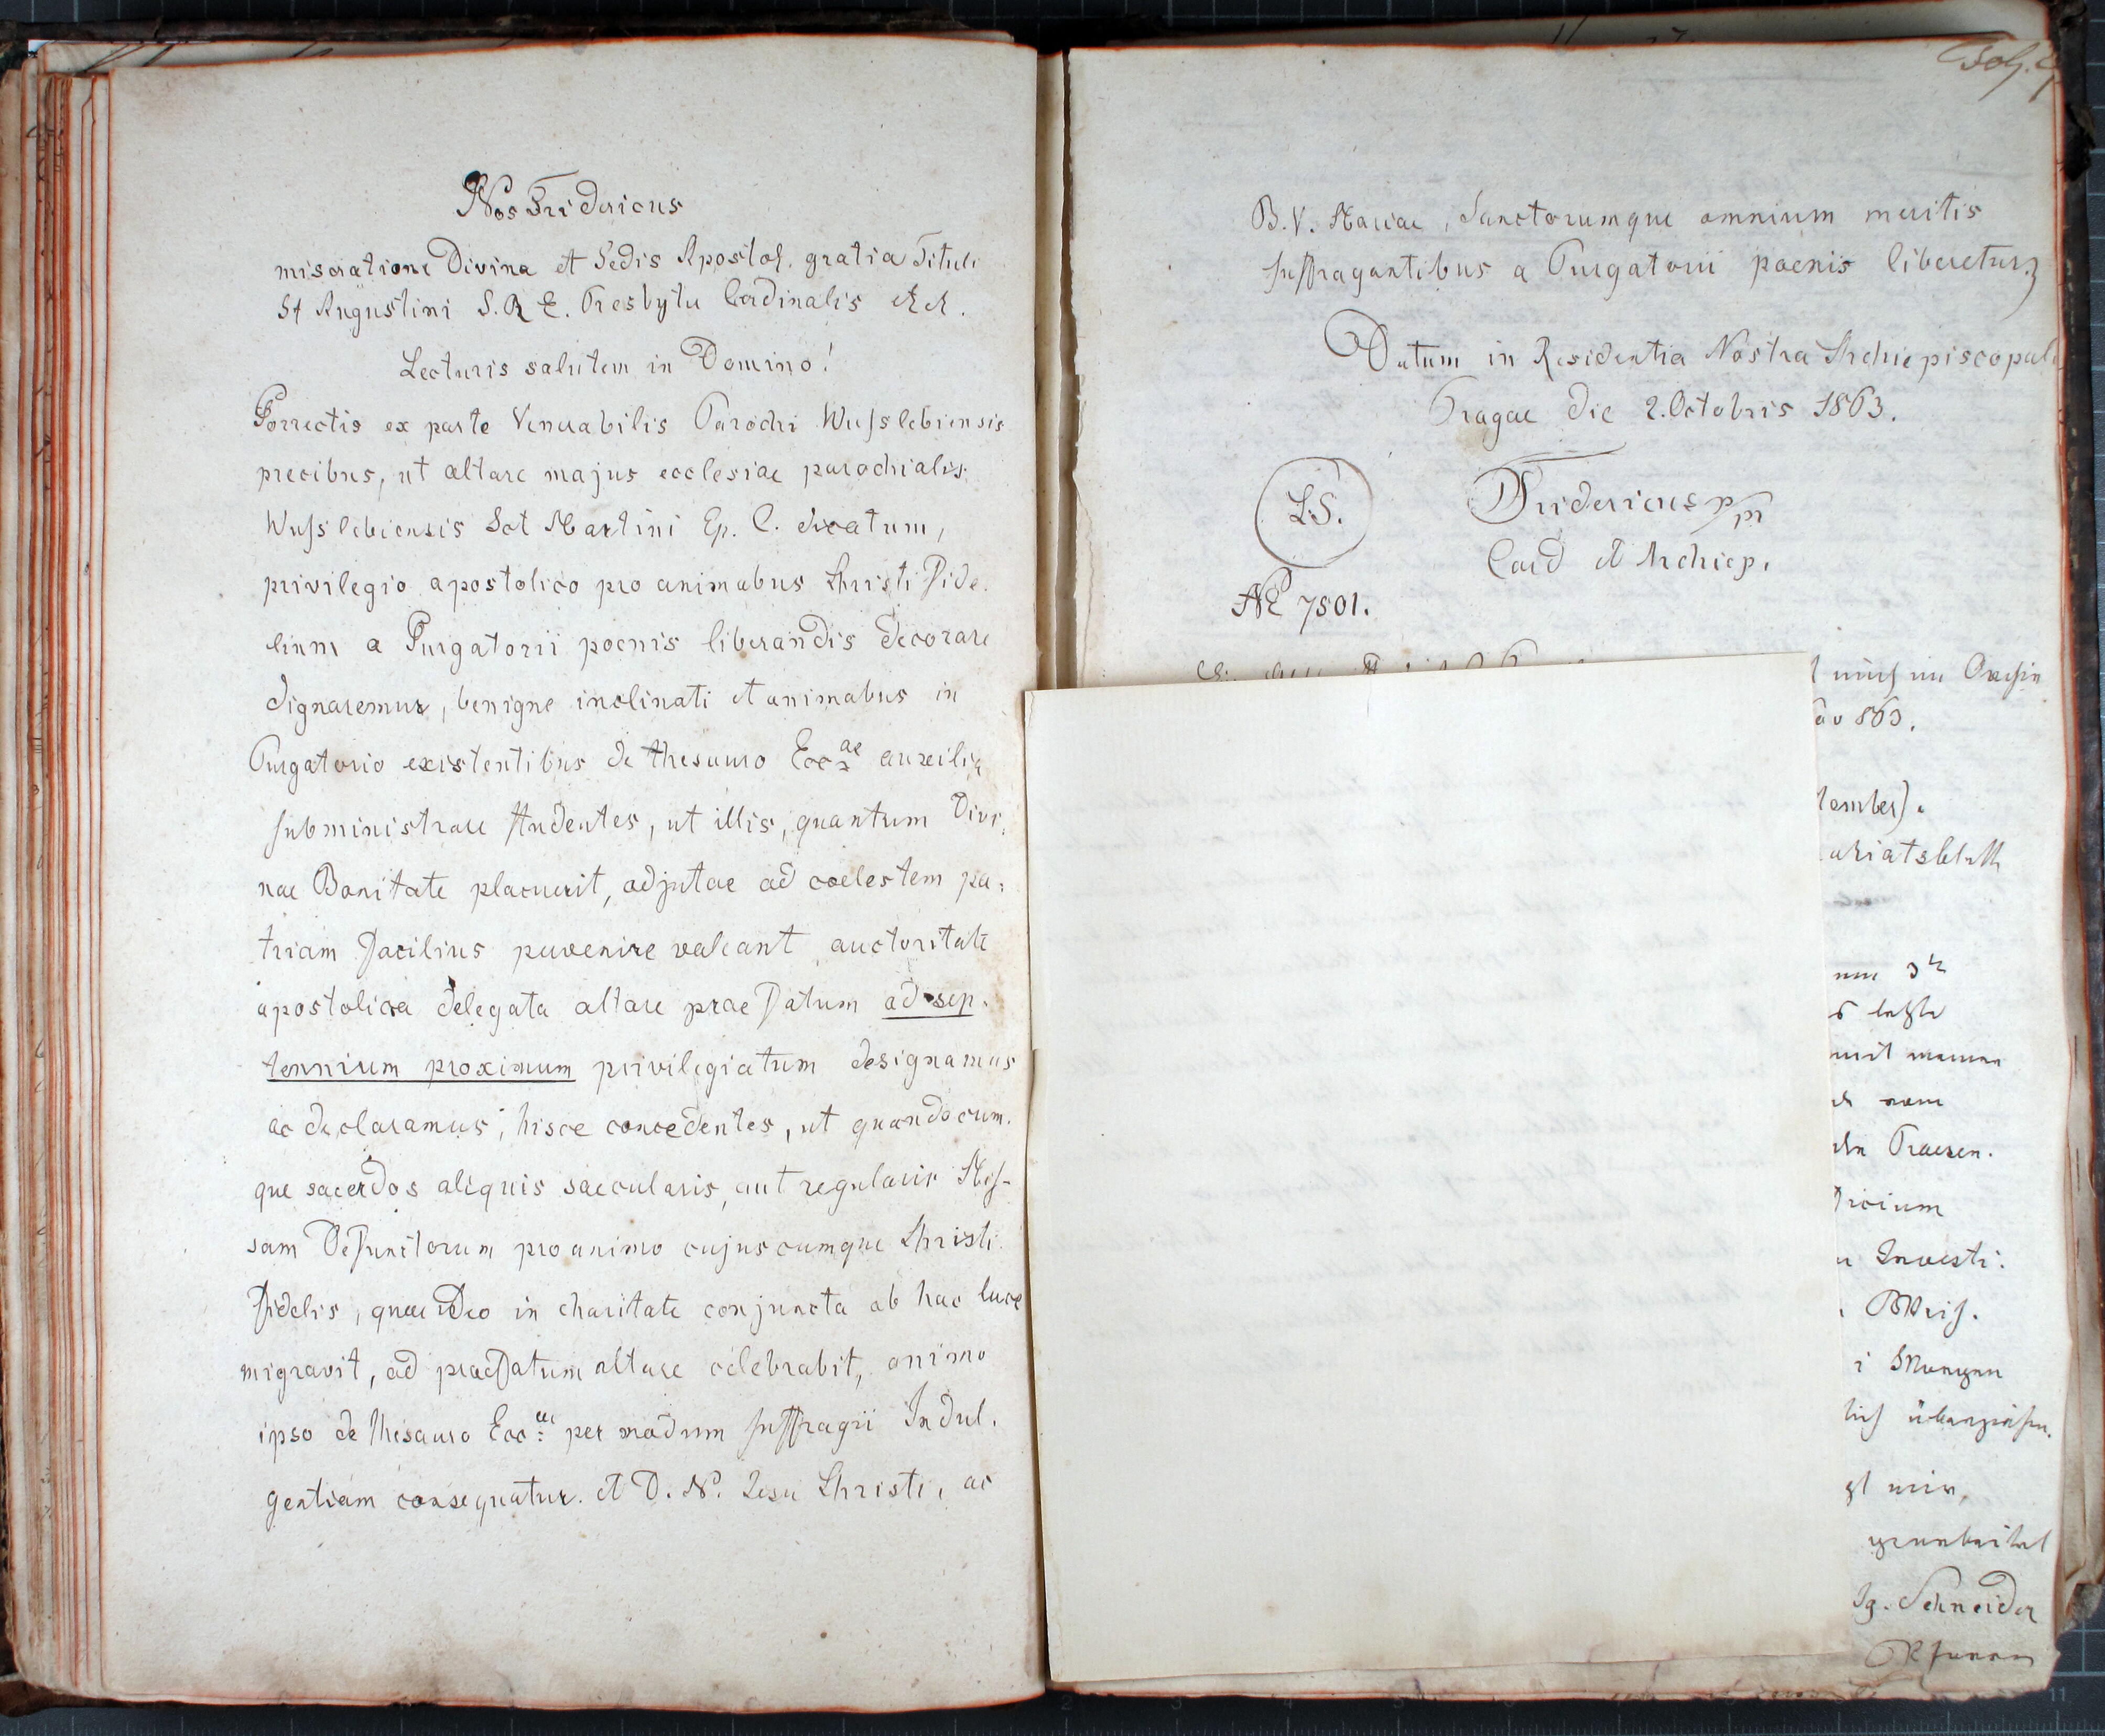 Nos Fridericus
miseratione Divina et Sedis Apostol. gratia Tituli
St Augustini S. R. E. Presbyter Cardinalis et et.
Lecturis salutem in Domino!
Porrectis ex parte Venerabilis Parochi Wußlebiensis
precibus, ut altare majus ecclesiae parochialis
Wußlebiensis Sct Martini Ep. C. dicatum,
privilegio apostolico pro animabus Christi Fide-
lium a Purgatorii poenis liberandis decorare
dignaremur, benigne inclinati et animabus in
Purgatorio existentibus de thesauro Ecc:ae auxilia
subministrare studentes, ut illis, quantum Divi-
nae Bonitate placuerit, adjutae ad coelestem pa-
triam facilius pervenire valeant, auctoritate
apostolica delegata altare praefatum ad sep-
tennium proximum privilegiatum designamus
ac declaramus; hisce concedentes, ut quandocum-
que sacerdos aliquis saecularis, aut regularis Mis-
sam Defunctorum pro anima cujuscumque Christi
fidelis, quae Deo in charitate conjuncta ab hac luce
migravit, ad praefatum altare celebrabit, anima
ipso de thesauro Ecc:ae per modum suffragii Indul-
gentiam consequatur. et D. N. Jesu Christi, ac
Fol. 9
B. V. Mariae, Sanctorumque omnium meritis
suffragantibus a Purgatorii poenis liberetur.
Datum in Residentia Nostra Archiepiscopali
Pragae die 2. Octobris 1863.
L.S.
Fridericus mp
Card et Archiep.
NE 7501.
863.
tember).
ariatsblatt
3
letzte
mit meinen
vom
Praesen.
ficium
Investi-
lich
mir,
Ig. Schneider
Pfarrer